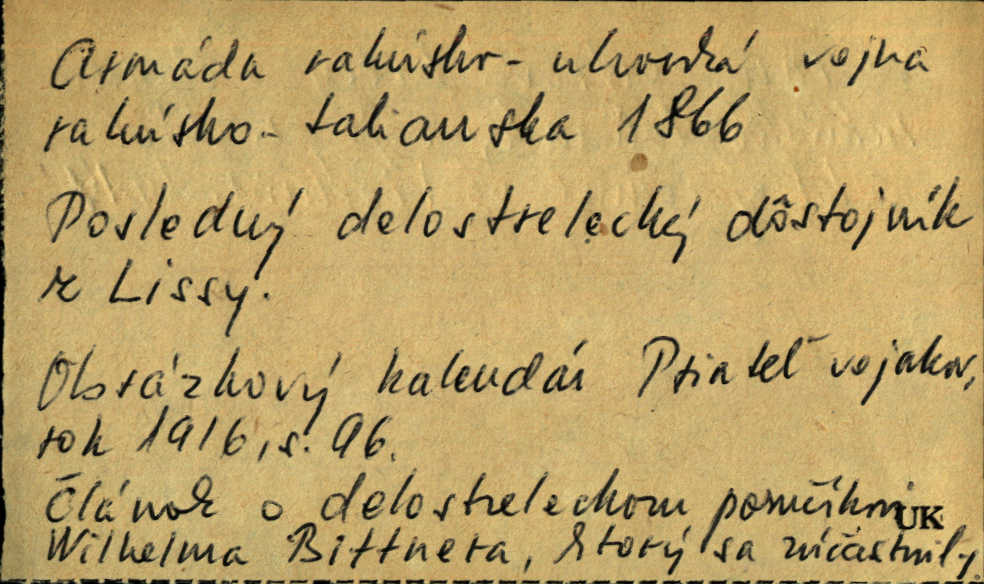 Armáda rakúsko-uhorská vojna
rakúsko-talianska 1866
Posledný delostrelecký dôstojník
z Lissy.
Obrázkový kalendár Priateľ vojakov,
rok 1916, s. 96.
Článok o delostreleckom poručíkovi
UK
Wilhelma Bittnera, ktorý sa zúčastnil